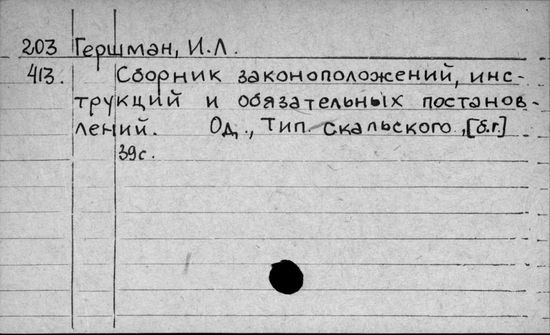 203 Гершман, И.Л.
413. Сборник законоположений, инс-
трукций и обязательных постанов-
лений. Од., Тип. Скальского, [б.г.]
39с.